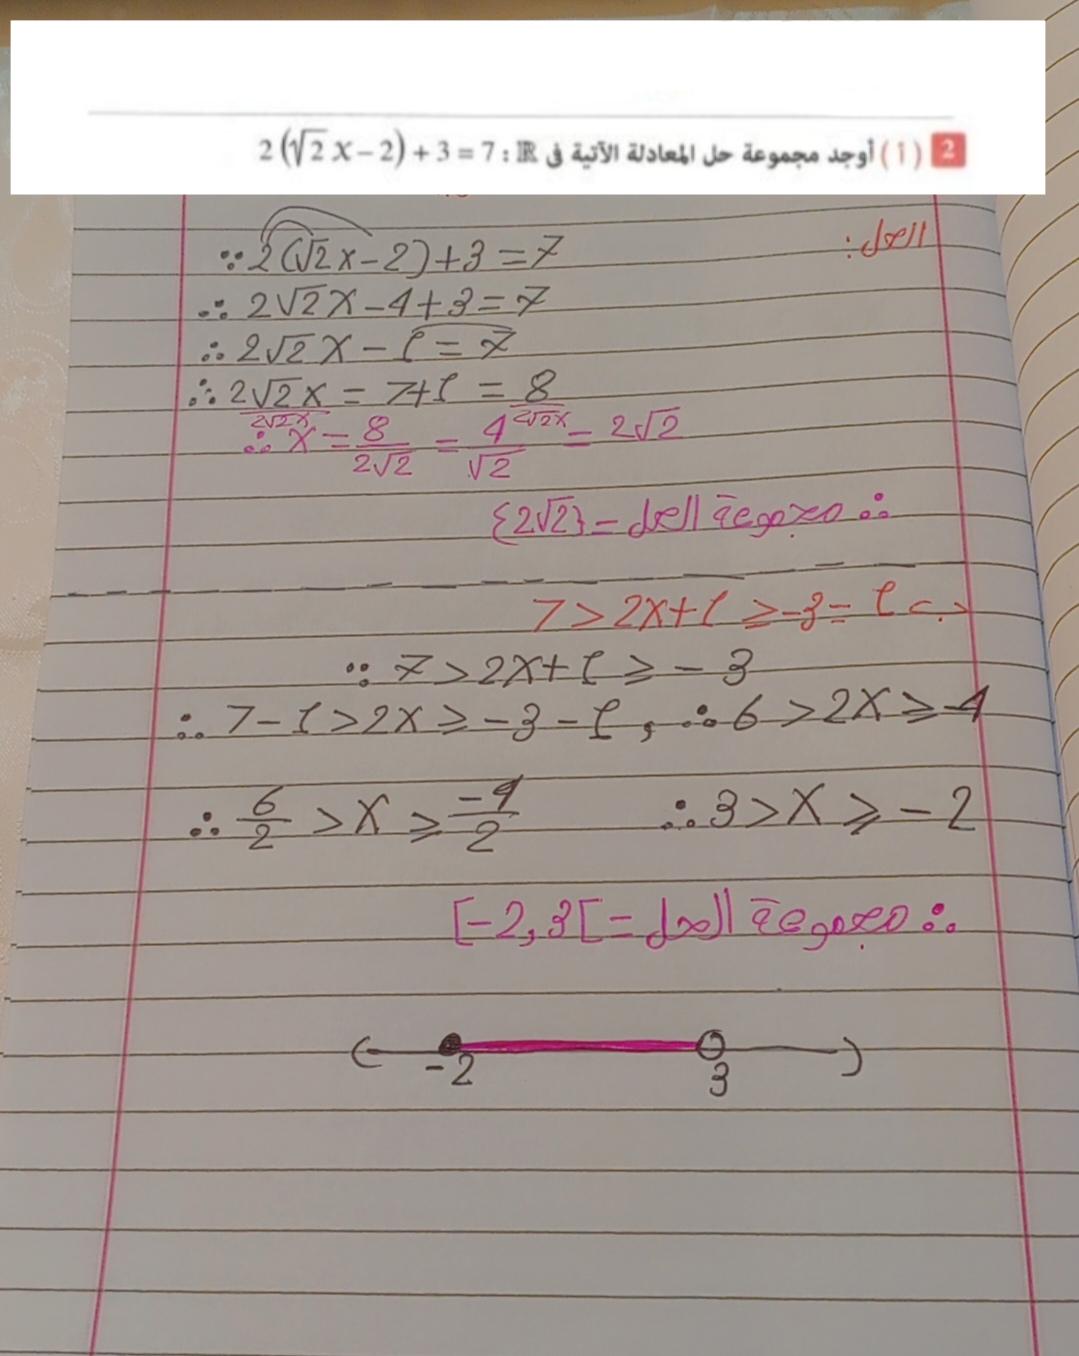 2 (أ) أوجد مجموعة حل المعادلة الآتية فى ℝ : 2(√2 x − 2) + 3 = 7
الحل:
∵ 2(√2x−2)+3=7
∴ 2√2x−4+3=7
∴ 2√2x−1=7
∴ 2√2x = 7+1 = 8
2√2x 2√2x
∴ x = 8/2√2 = 4/√2 = 2√2
∴ مجموعة الحل = {2√2}
ب) 7>2x+1≥−3
∵ 7>2x+1≥−3
∴ 7−1>2x≥−3−1 , ∴ 6>2x≥−4
∴ 6/2 >x≥ −4/2 ∴ 3>x≥−2
∴ مجموعة الحل = [−2,3[
−2 3